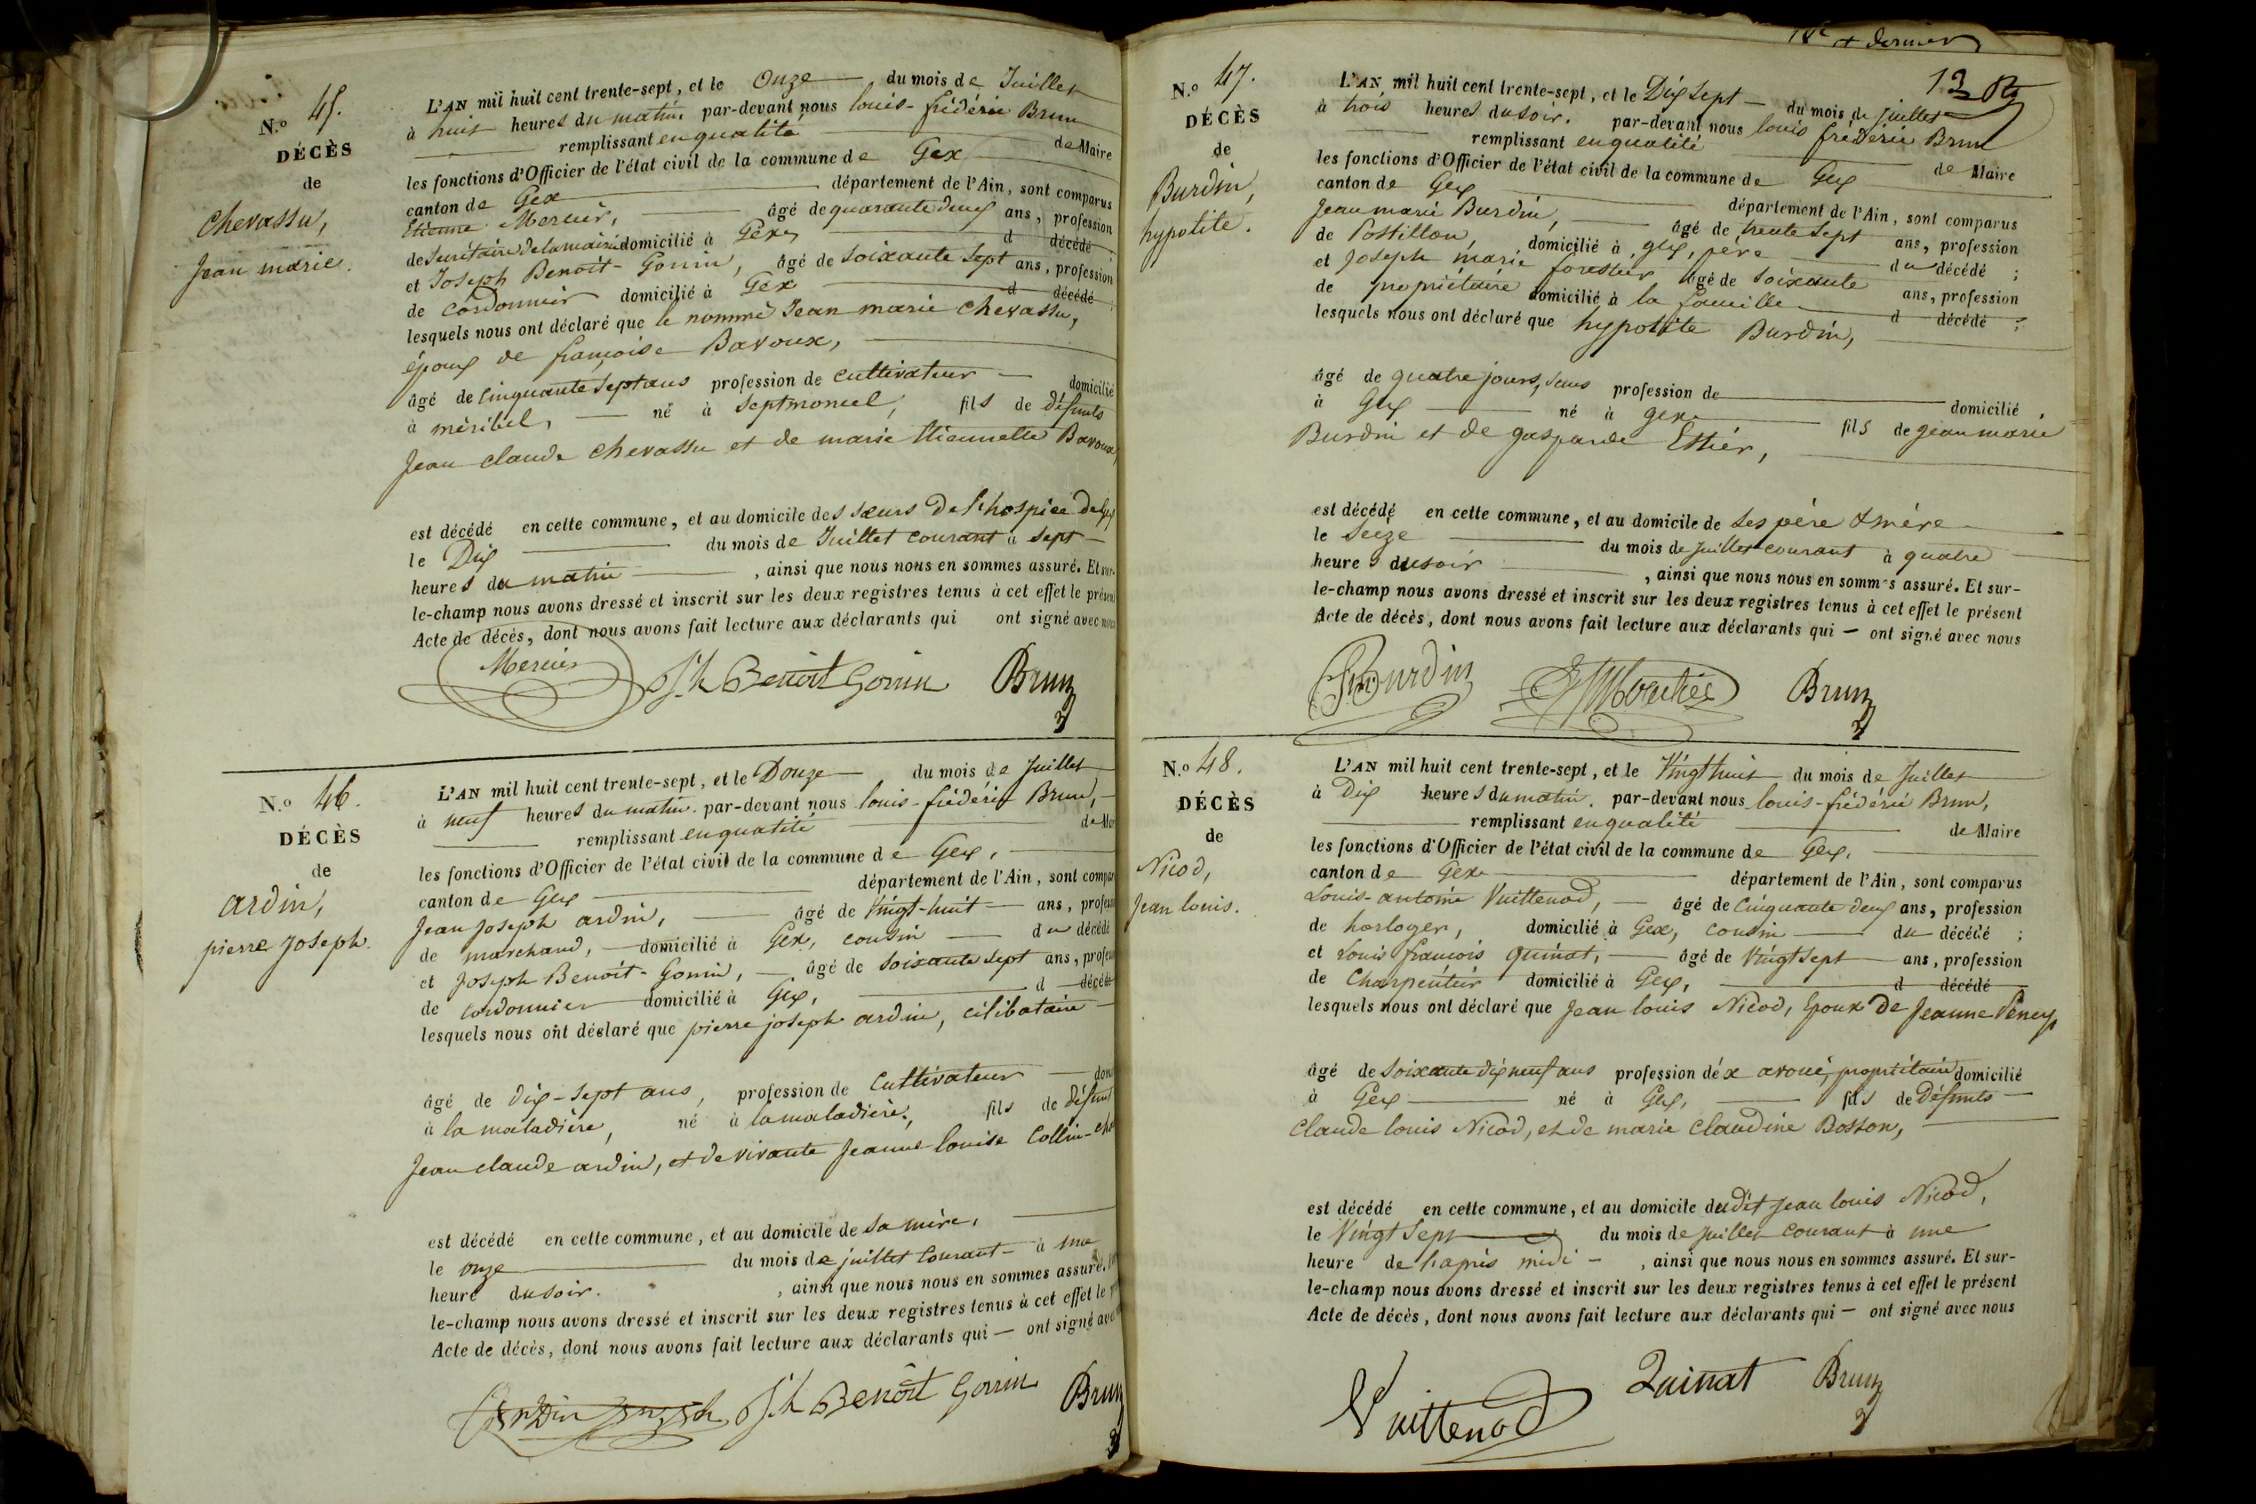 N.o 45.
DÉCÈS
de
Chevassu,
Jean marie.
L'AN mil huit cent trente-sept, et le Onze du mois de Juillet
à huit heures du matin. par-devant nous louis-frédéric Brun
remplissant en qualité de Maire
les fonctions d'Officier de l'état civil de la commune de Gex
canton de Gex département de l'Ain, sont comparus
Etienne Mercier, âgé de quarante deux ans, profession
de Secrétaire de la mairie domicilié à Gex, d décédé
et Joseph Benoit-Gonin, âgé de soixante sept ans, profession
de Cordonnier domicilié à Gex d décédé
lesquels nous ont déclaré que le nommé Jean marie Chevassu,
époux de françoise Bavoux,
âgé de cinquante sept ans profession de cultivateur domicilié
à méribel, né à Septmoncel, fils de défunts
Jean claude Chevassu et de marie Etiennette Bavoux,
est décédé en cette commune, et au domicile des sœurs de l'hospice de Gex
le Dix du mois de Juillet courant à sept
heures du matin , ainsi que nous nous en sommes assuré. Et sur-
le-champ nous avons dressé et inscrit sur les deux registres tenus à cet effet le présent
Acte de décès, dont nous avons fait lecture aux déclarants qui ont signé avec nous
Mercier Jh Benoit Gonin Brun
N.o 46.
DÉCÈS
de
ardin,
pierre Joseph.
L'AN mil huit cent trente-sept, et le Douze du mois de Juillet
à neuf heures du matin. par-devant nous louis-frédéric Brun,
remplissant en qualité de Mai
les fonctions d'Officier de l'état civil de la commune de Gex,
canton de Gex département de l'Ain, sont compar
Jean Joseph ardin, âgé de Vingt-huit ans, profess
de marchand, domicilié à Gex, cousin du décédé
et Joseph Benoit-Gonin, âgé de soixante sept ans, profess
de cordonnier domicilié à Gex, d décédé
lesquels nous ont déclaré que pierre joseph ardin, célibataire
âgé de dix-sept ans, profession de Cultivateur dom
à la maladière, né à la maladière, fils de défunt
Jean claude ardin, et de vivante Jeanne louise Collin-
est décédé en cette commune, et au domicile de sa mère,
le onze du mois de juillet courant à une
heure du soir. , ainsi que nous nous en sommes assuré.
le-champ nous avons dressé et inscrit sur les deux registres tenus à cet effet le
Acte de décès, dont nous avons fait lecture aux déclarants qui — ont signé ave
Ardin Joseph Jh Benoit Gonin Brun
18e et dernier
N.o 47.
DÉCÈS
de
Burdin,
hypolite.
L'AN mil huit cent trente-sept, et le Dix Sept du mois de juillet
à trois heures du soir. par-devant nous louis frédéric Brun
remplissant en qualité de Maire
les fonctions d'Officier de l'état civil de la commune de Gex
canton de Gex département de l'Ain, sont comparus
Jean marie Burdin, âgé de trente sept ans, profession
de Postillon, domicilié à gex, père du décédé ;
et Joseph marie forestier âgé de soixante ans, profession
de propriétaire domicilié à la faucille d décédé ;
lesquels nous ont déclaré que hypolite Burdin,
âgé de quatre jours, sans profession de domicilié
à Gex né à gex fils de jean marie
Burdin et de gasparde Ethier,
est décédé en cette commune, et au domicile de ses père & mère
le Seize du mois de juillet courant à quatre
heures du soir , ainsi que nous nous en sommes assuré. Et sur-
le-champ nous avons dressé et inscrit sur les deux registres tenus à cet effet le présent
Acte de décès, dont nous avons fait lecture aux déclarants qui — ont signé avec nous
Burdin Brun
N.o 48.
DÉCÈS
de
Nicod,
Jean louis.
L'AN mil huit cent trente-sept, et le Vingt huit du mois de Juillet
à Dix heures du matin. par-devant nous louis-frédéric Brun,
remplissant en qualité de Maire
les fonctions d'Officier de l'état civil de la commune de Gex,
canton de Gex département de l'Ain, sont comparus
Louis-antoine Vuittenod, âgé de Cinquante deux ans, profession
de horloger, domicilié à Gex, cousin du décédé ;
et Louis françois quinat, âgé de Vingt sept ans, profession
de Charpentier domicilié à Gex, d décédé
lesquels nous ont déclaré que Jean louis Nicod, époux de Jeanne Péney,
âgé de soixante dix neuf ans profession d'éx avoué, propriétaire domicilié
à Gex né à Gex, fils de Défunts
Claude louis Nicod, et de marie Claudine Bosson,
est décédé en cette commune, et au domicile du dit Jean louis Nicod,
le Vingt Sept du mois de Juillet courant à une
heure de l'après midi , ainsi que nous nous en sommes assuré. Et sur-
le-champ nous avons dressé et inscrit sur les deux registres tenus à cet effet le présent
Acte de décès, dont nous avons fait lecture aux déclarants qui — ont signé avec nous
Vuittenod Quinat Brun